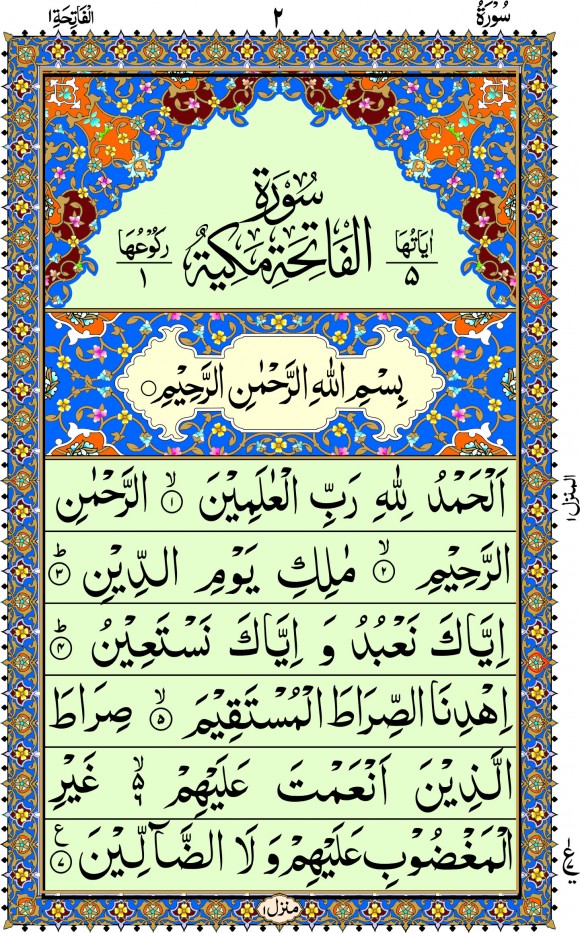 سُوْرَةُ
٢
اَلْفَاتِحَة١
سُوْرَةُ
اٰيَاتُهَا الْفَاتِحَةِ مَكِّيَةٌ رُكُوْعُهَا
٥ ١
بِسْمِ اللهِ الرَّحْمٰنِ الرَّحِيْمِ
اَلْحَمْدُ لِلهِ رَبِّ الْعٰلَمِيْنَ ۙ﴿١﴾ الرَّحْمٰنِ
الرَّحِيْمِ ۙ﴿٢﴾ مٰلِكِ يَوْمِ الدِّيْنِ ؕ﴿٣﴾
اِيَّاكَ نَعْبُدُ وَ اِيَّاكَ نَسْتَعِيْنُ ؕ﴿٤﴾
اِهْدِنَا الصِّرَاطَ الْمُسْتَقِيْمَ ۙ﴿٥﴾ صِرَاطَ
الَّذِيْنَ اَنْعَمْتَ عَلَيْهِمْ ۙ۵ ٦ غَيْرِ
الْمَغْضُوْبِ عَلَيْهِمْ وَ لَا الضَّآلِّيْنَ ع﴿٧﴾
المنزل١
منزل١